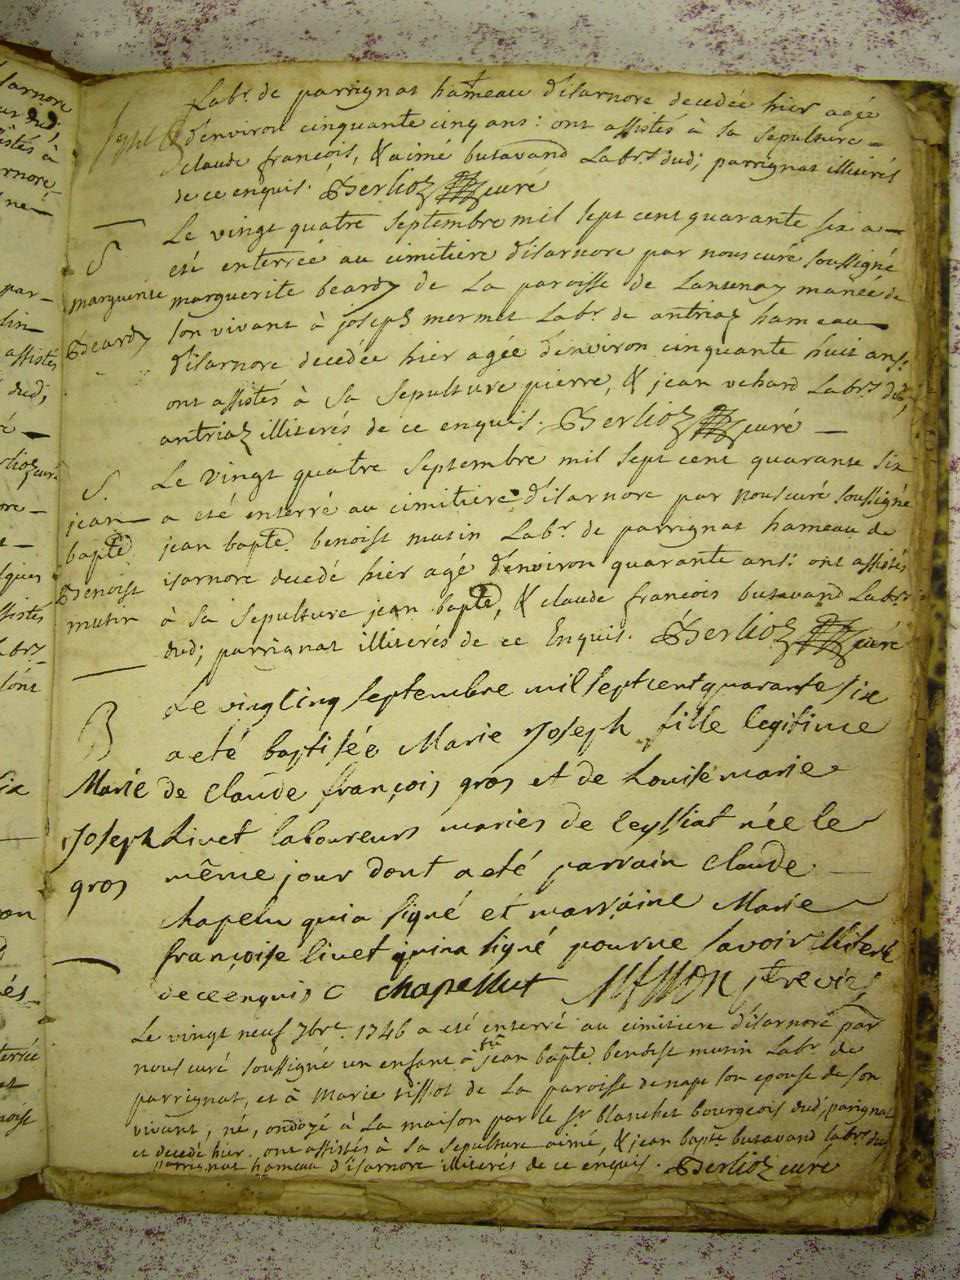 Labr. de parrignat hameau d'isarnore decedée hier agée
d'environ cinquante cinq ans: ont assistés à sa sepulture
claude françois, & aimé butavand Labrs. dudi; parrignat illiterés
de ce enquis. Berlioz curé
Le vingt quatre septembre mil sept cent quarante six a
eté enterrée au cimitiere d'isarnore par nous curé soussigné
marguerite beardy de La paroisse de Lantenay mariée de
son vivant à joseph mermet Labr. de antriaz hameau
d'isarnore decedée hier agée d'environ cinquante huit ans:
ont assistés à sa sepulture pierre, & jean vehard Labrs. dudi;
antriaz illiterés de ce enquis. Berlioz curé
S
marguerite
Beardy
Le vingt quatre septembre mil sept cent quarante six
a eté enterré au cimitiere d'isarnore par nous curé soussigné
jean bapte. benoist mutin Labr. de parrignat hameau de
isarnore decedé hier agé d'environ quarante ans: ont assistés
à sa sepulture jean bapte, & claude francois butavand Labrs
dudi; parrignat illiterés de ce Enquis. Berlioz curé
S.
jean
bapte
Benoist
mutin
Le vingt cinq septembre mil sept cent quarante six
a eté baptisée Marie Joseph fille legitime
de claude françois gros et de Louise marie
Livet laboureurs mariés de ceyssiat née le
même jour dont a eté parrain claude
chapelu qui a signé et marraine Marie
françoise livet qui n'a signé pour ne savoir
de ce enquis C chapellut
B
Marie
Joseph
gros
Le vingt neuf 7bre. 1746 a eté enterré au cimitiere d'isarnore par
nous curé soussigné un enfant à feu jean bapte. benoist mutin Labr de
parrignat, et à Marie tissot de La paroisse de nape son epouse de son
vivant, né, ondoyé à La maison par le sr. blanchet bourgeois dudi; parignat
et decedé hier. ont assistés à sa sepulture aimé, & jean bapte. butavand labrs. dudi
parrignat hameau d'isarnore illiterés de ce enquis. Berlioz curé